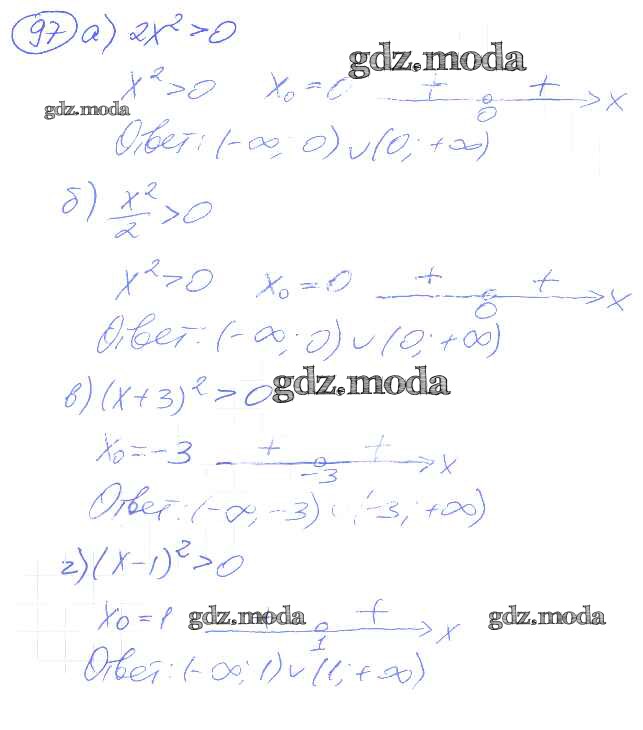 97 а) 2x² > 0
gdz.moda
x² > 0 x₀ = 0 + + 0 x
gdz.moda
Ответ: (-∞; 0) ∪ (0; +∞)
б) x²/2 > 0
x² > 0 x₀ = 0 + + 0 x
Ответ: (-∞; 0) ∪ (0; +∞)
в) (x+3)² > 0 gdz.moda
x₀ = -3 + + -3 x
Ответ: (-∞; -3) ∪ (-3; +∞)
г) (x-1)² > 0
x₀ = 1 gdz.moda + + 1 x gdz.moda
Ответ: (-∞; 1) ∪ (1; +∞)